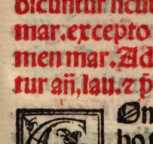 dicuntur
mar.excepto
men mar. Ad
tur añ, lau. ⁊ p̄
Om